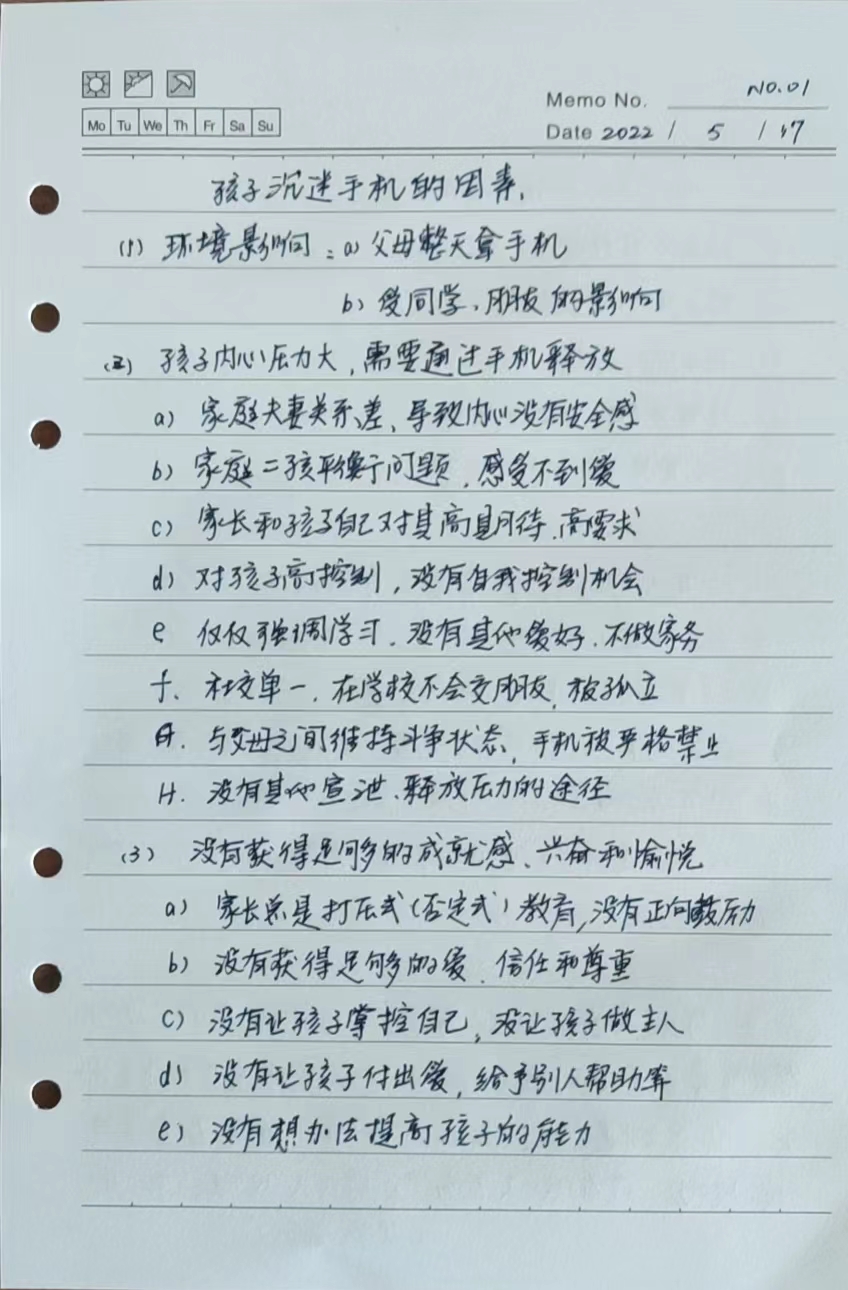 Memo No. NO.01
Mo Tu We Th Fr Sa Su
Date 2022 / 5 / 17
孩子沉迷手机的因素.
(1) 环境影响: a) 父母整天拿手机
b) 受同学、朋友的影响
(2) 孩子内心压力大,需要通过手机释放
a) 家庭夫妻关系差、导致内心没有安全感
b) 家庭二孩平衡问题,感受不到爱
c) 家长和孩子自己对其高期待、高要求
d) 对孩子高控制,没有自我控制机会
e 仅仅强调学习、没有其他爱好、不做家务
f、社交单一、在学校不会交朋友,被孤立
G. 与父母之间维持斗争状态,手机被严格禁止
H. 没有其他宣泄、释放压力的途径
(3) 没有获得足够多的成就感、兴奋和愉悦
a) 家长总是打压式(否定式)教育,没有正向鼓励
b) 没有获得足够多的爱、信任和尊重
c) 没有让孩子掌控自己,没让孩子做主人
d) 没有让孩子付出爱,给予别人帮助等
e) 没有想办法提高孩子的能力